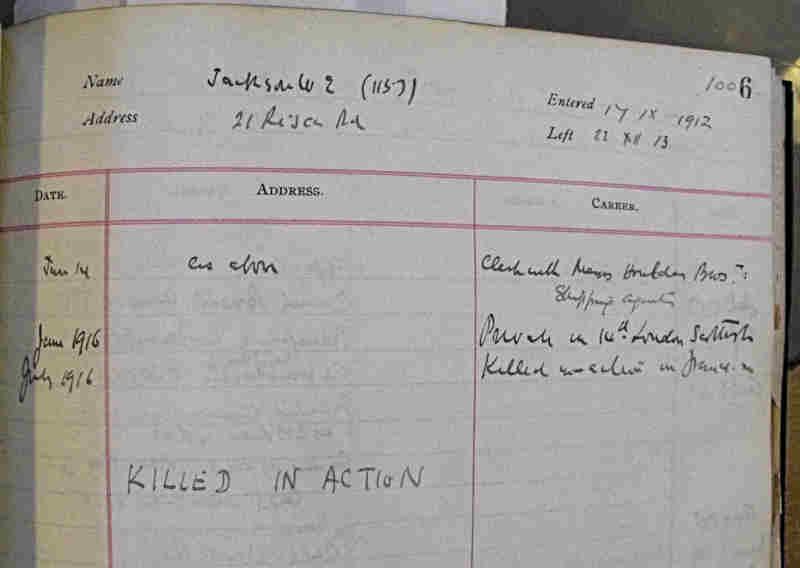 Name Jackson W E (1157) 1006
Address 21 Risca Rd
Entered 17 IX 1912
Left 22 XII 13
DATE. ADDRESS. CAREER.
Jan 14 as above Clerk with Messrs Houlder Bros.
Shipping agents
June 1916 Private in 14th London Scottish
July 1916 Killed in action in France
KILLED IN ACTION